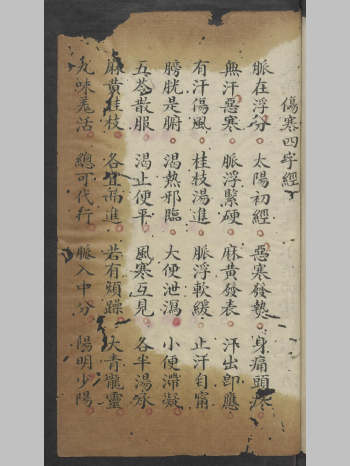 傷寒四字經
脈在浮分 太陽初經 惡寒發熱 身痛頭疼
無汗惡寒 脈浮緊硬 麻黃發表 汗出即應
有汗傷風 桂枝湯進 脈浮軟緩 止汗自甯
膀胱是腑 渴熱邪臨 大便泄瀉 小便滯凝
五苓散服 渴止便平 風寒互見 各半湯
麻黃桂枝 各宜 進 若有煩躁 大青龍靈
九味羗活 總可代行 脈入中分 陽明少陽